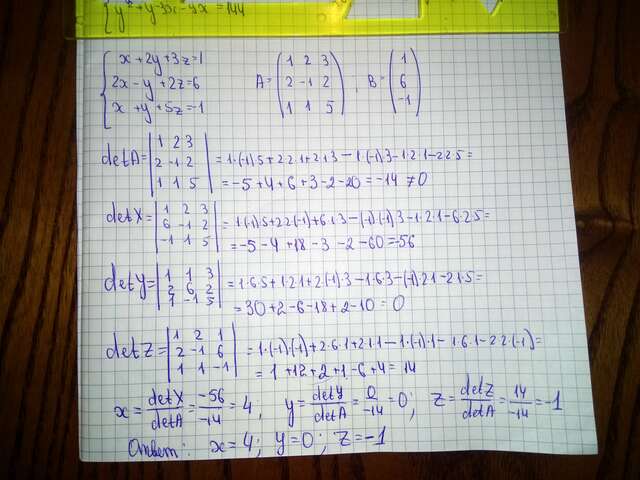 x+2y+3z=1
2x-y+2z=6
x+y+5z=-1
A= 1 2 3
2 -1 2
1 1 5
; B= 1
6
-1
detA= 1 2 3
2 -1 2
1 1 5
=1·(-1)·5+2·2·1+2·1·3-1·(-1)·3-1·2·1-2·2·5=
=-5+4+6+3-2-20=-14≠0
detX= 1 2 3
6 -1 2
-1 1 5
=1·(-1)·5+2·2·(-1)+6·1·3-(-1)·(-1)·3-1·2·1-6·2·5=
=-5-4+18-3-2-60=-56
detY= 1 1 3
2 6 2
1 -1 5
=1·6·5+1·2·1+2·(-1)·3-1·6·3-(-1)·2·1-2·1·5=
=30+2-6-18+2-10=0
detZ= 1 2 1
2 -1 6
1 1 -1
=1·(-1)·(-1)+2·6·1+2·1·1-1·(-1)·1-1·6·1-2·2·(-1)=
=1+12+2+1-6+4=14
x=detX/detA=-56/-14=4, y=detY/detA=0/-14=0; z=detZ/detA=14/-14=-1
Ответ: x=4; y=0; z=-1